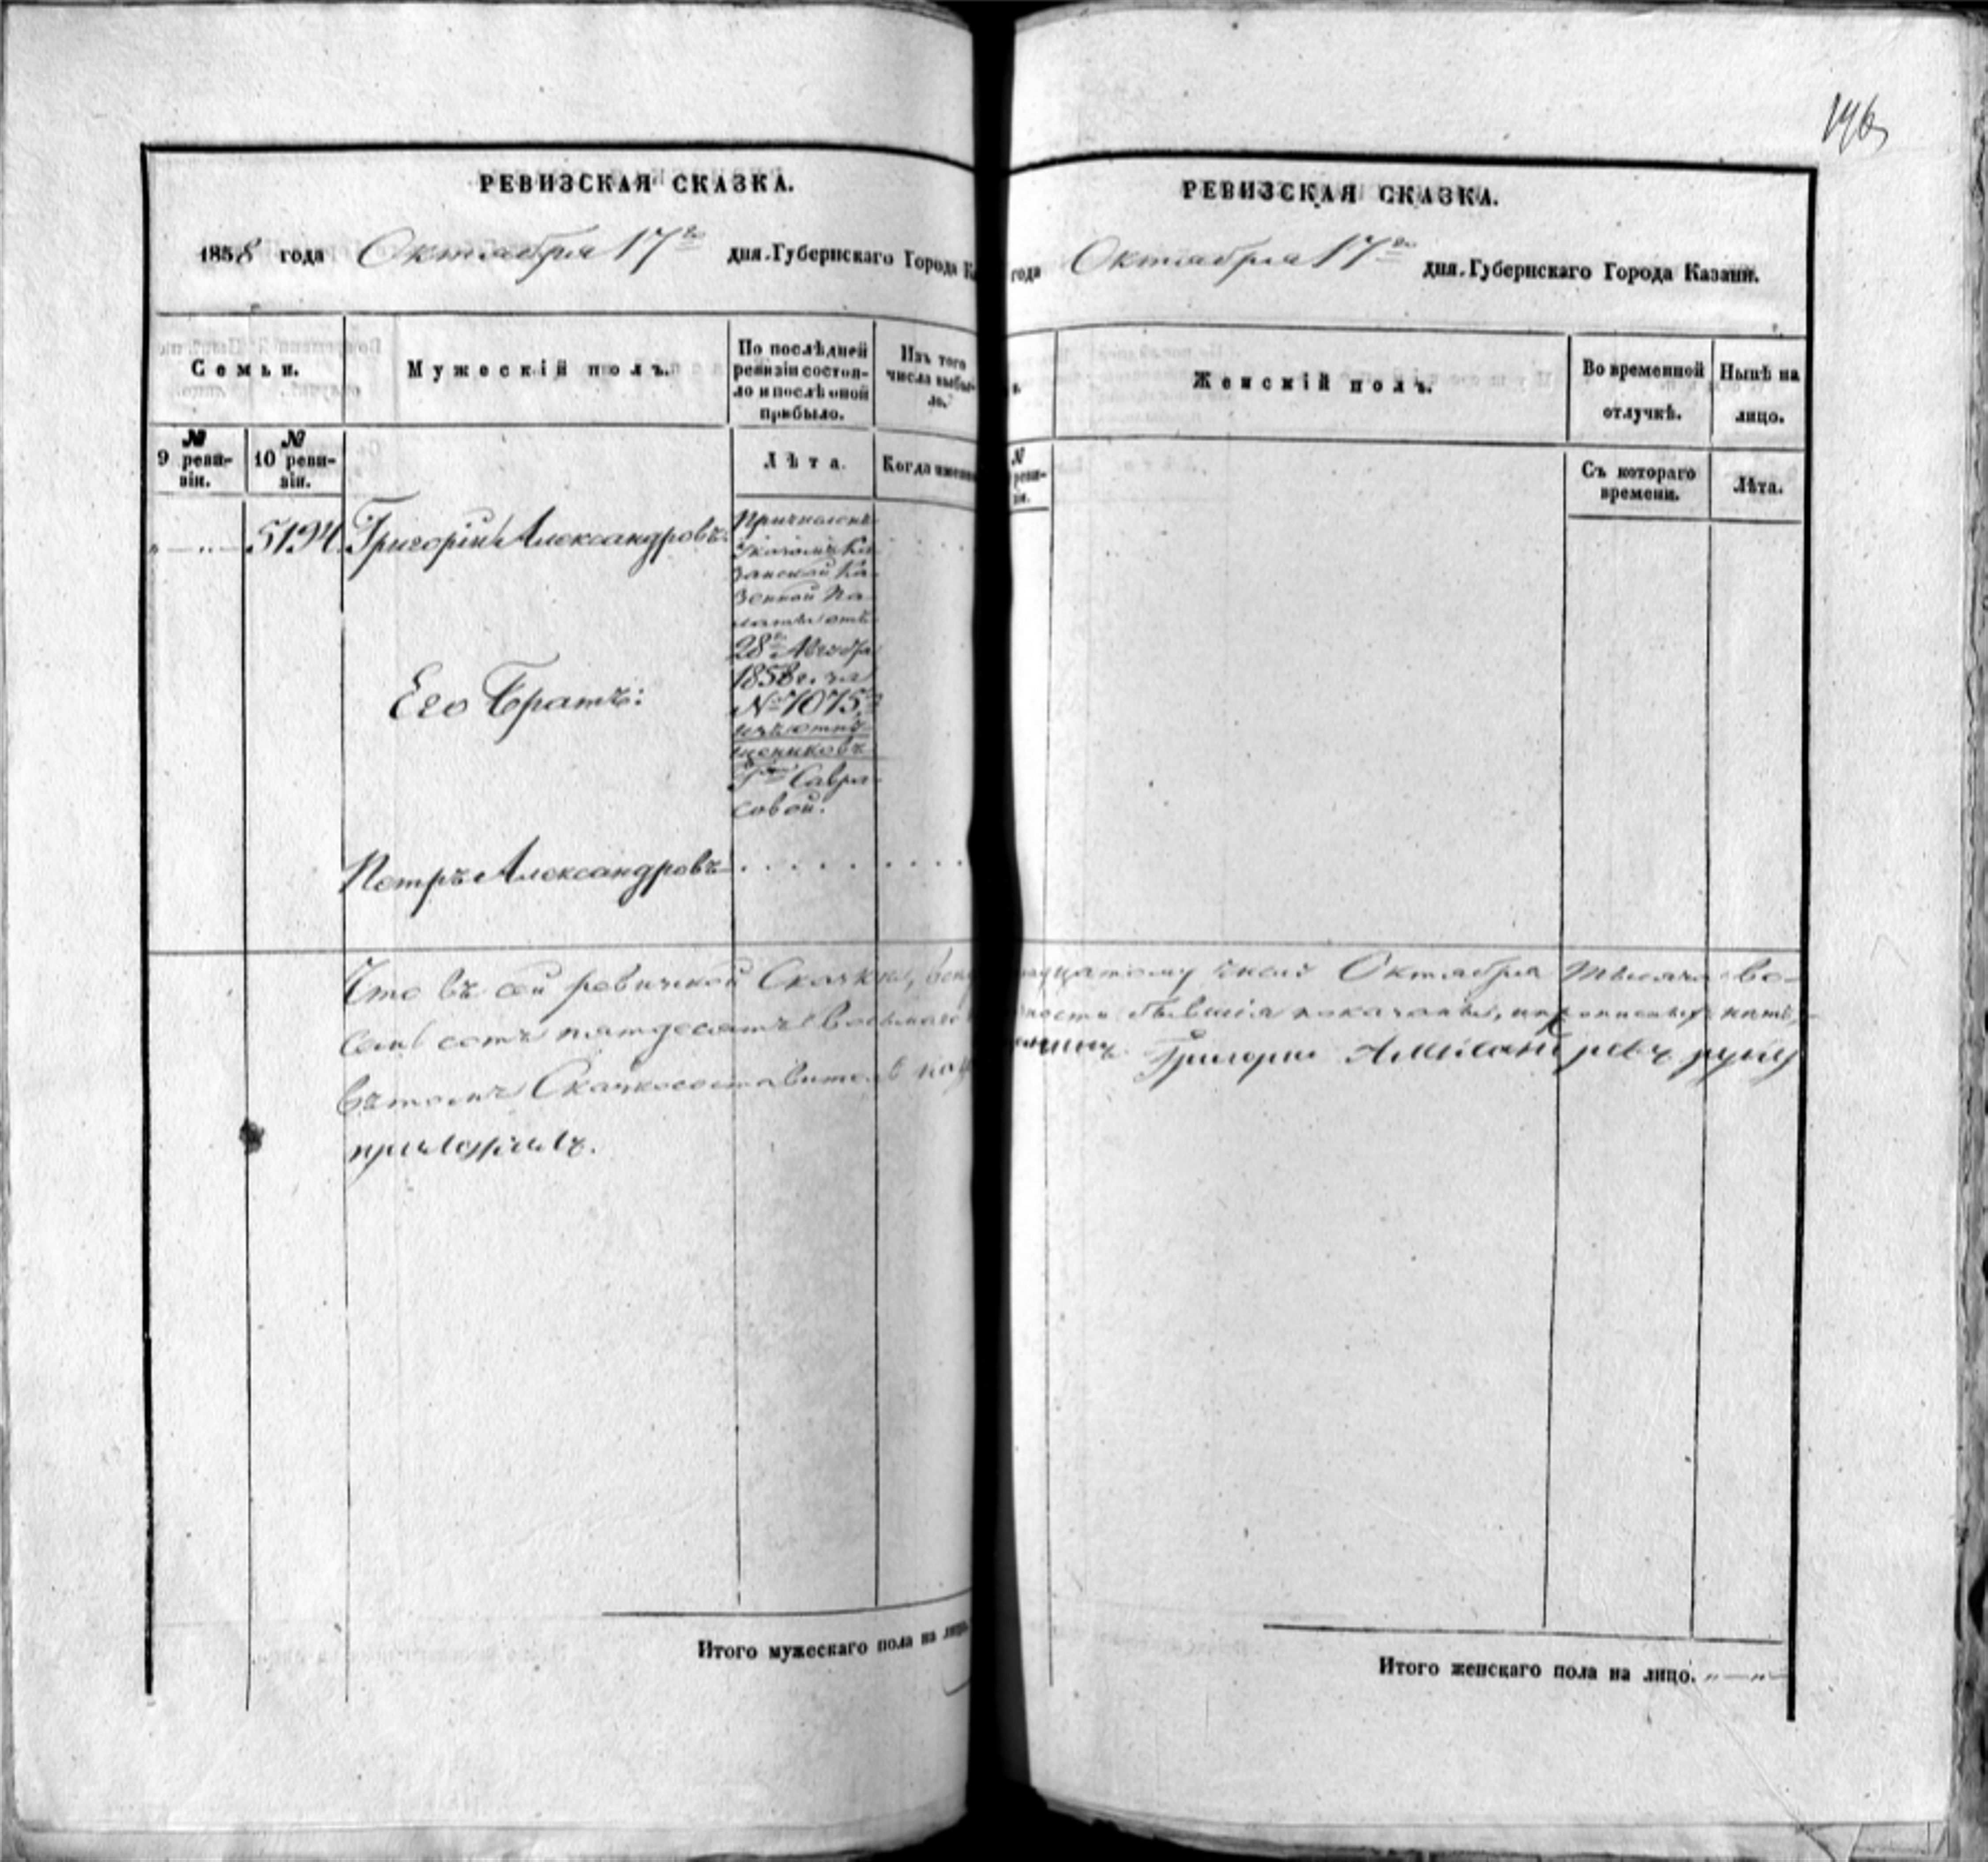 196
РЕВИЗСКАЯ СКАЗКА.
1858 года Октября 17го дня.Губернскаго Города К
Семьи.
Мужескій полъ.
По послѣдней
ревизіи состоя-
ло и послѣ оной
прибыло.
Изъ того
числа выбы-
ло.
№
9 реви-
зіи.
№
10 реви-
зіи.
Лѣта.
Когда именно
" — " — 5194. Григорій Александровъ.
Причисленъ
Указомъ Ка
занской Ка
зенной Па
латы отъ
28го
1858 г. за
№ 7075,
изъ отпу-
щенниковъ
Гжи Савра
совой.
Его Братъ:
Петръ Александровъ . . . . . . . .
Что въ сей ревизской Сказкѣ,
семь сотъ пятдесятъ восьмаго
въ томъ Сказкосоставитель
приложилъ.
Итого мужескаго пола на лицо
РЕВИЗСКАЯ СКАЗКА.
года Октября 17го дня.Губернскаго Города Казани.
Женскій полъ.
Во временной
отлучкѣ.
Нынѣ на
лицо.
№
реви-
зіи.
Съ котораго
времени.
Лѣта.
надцатому числу Октября тысяча во-
бывшія показаны,
Григорій Александровъ руку
Итого женскаго пола на лицо. " — " —